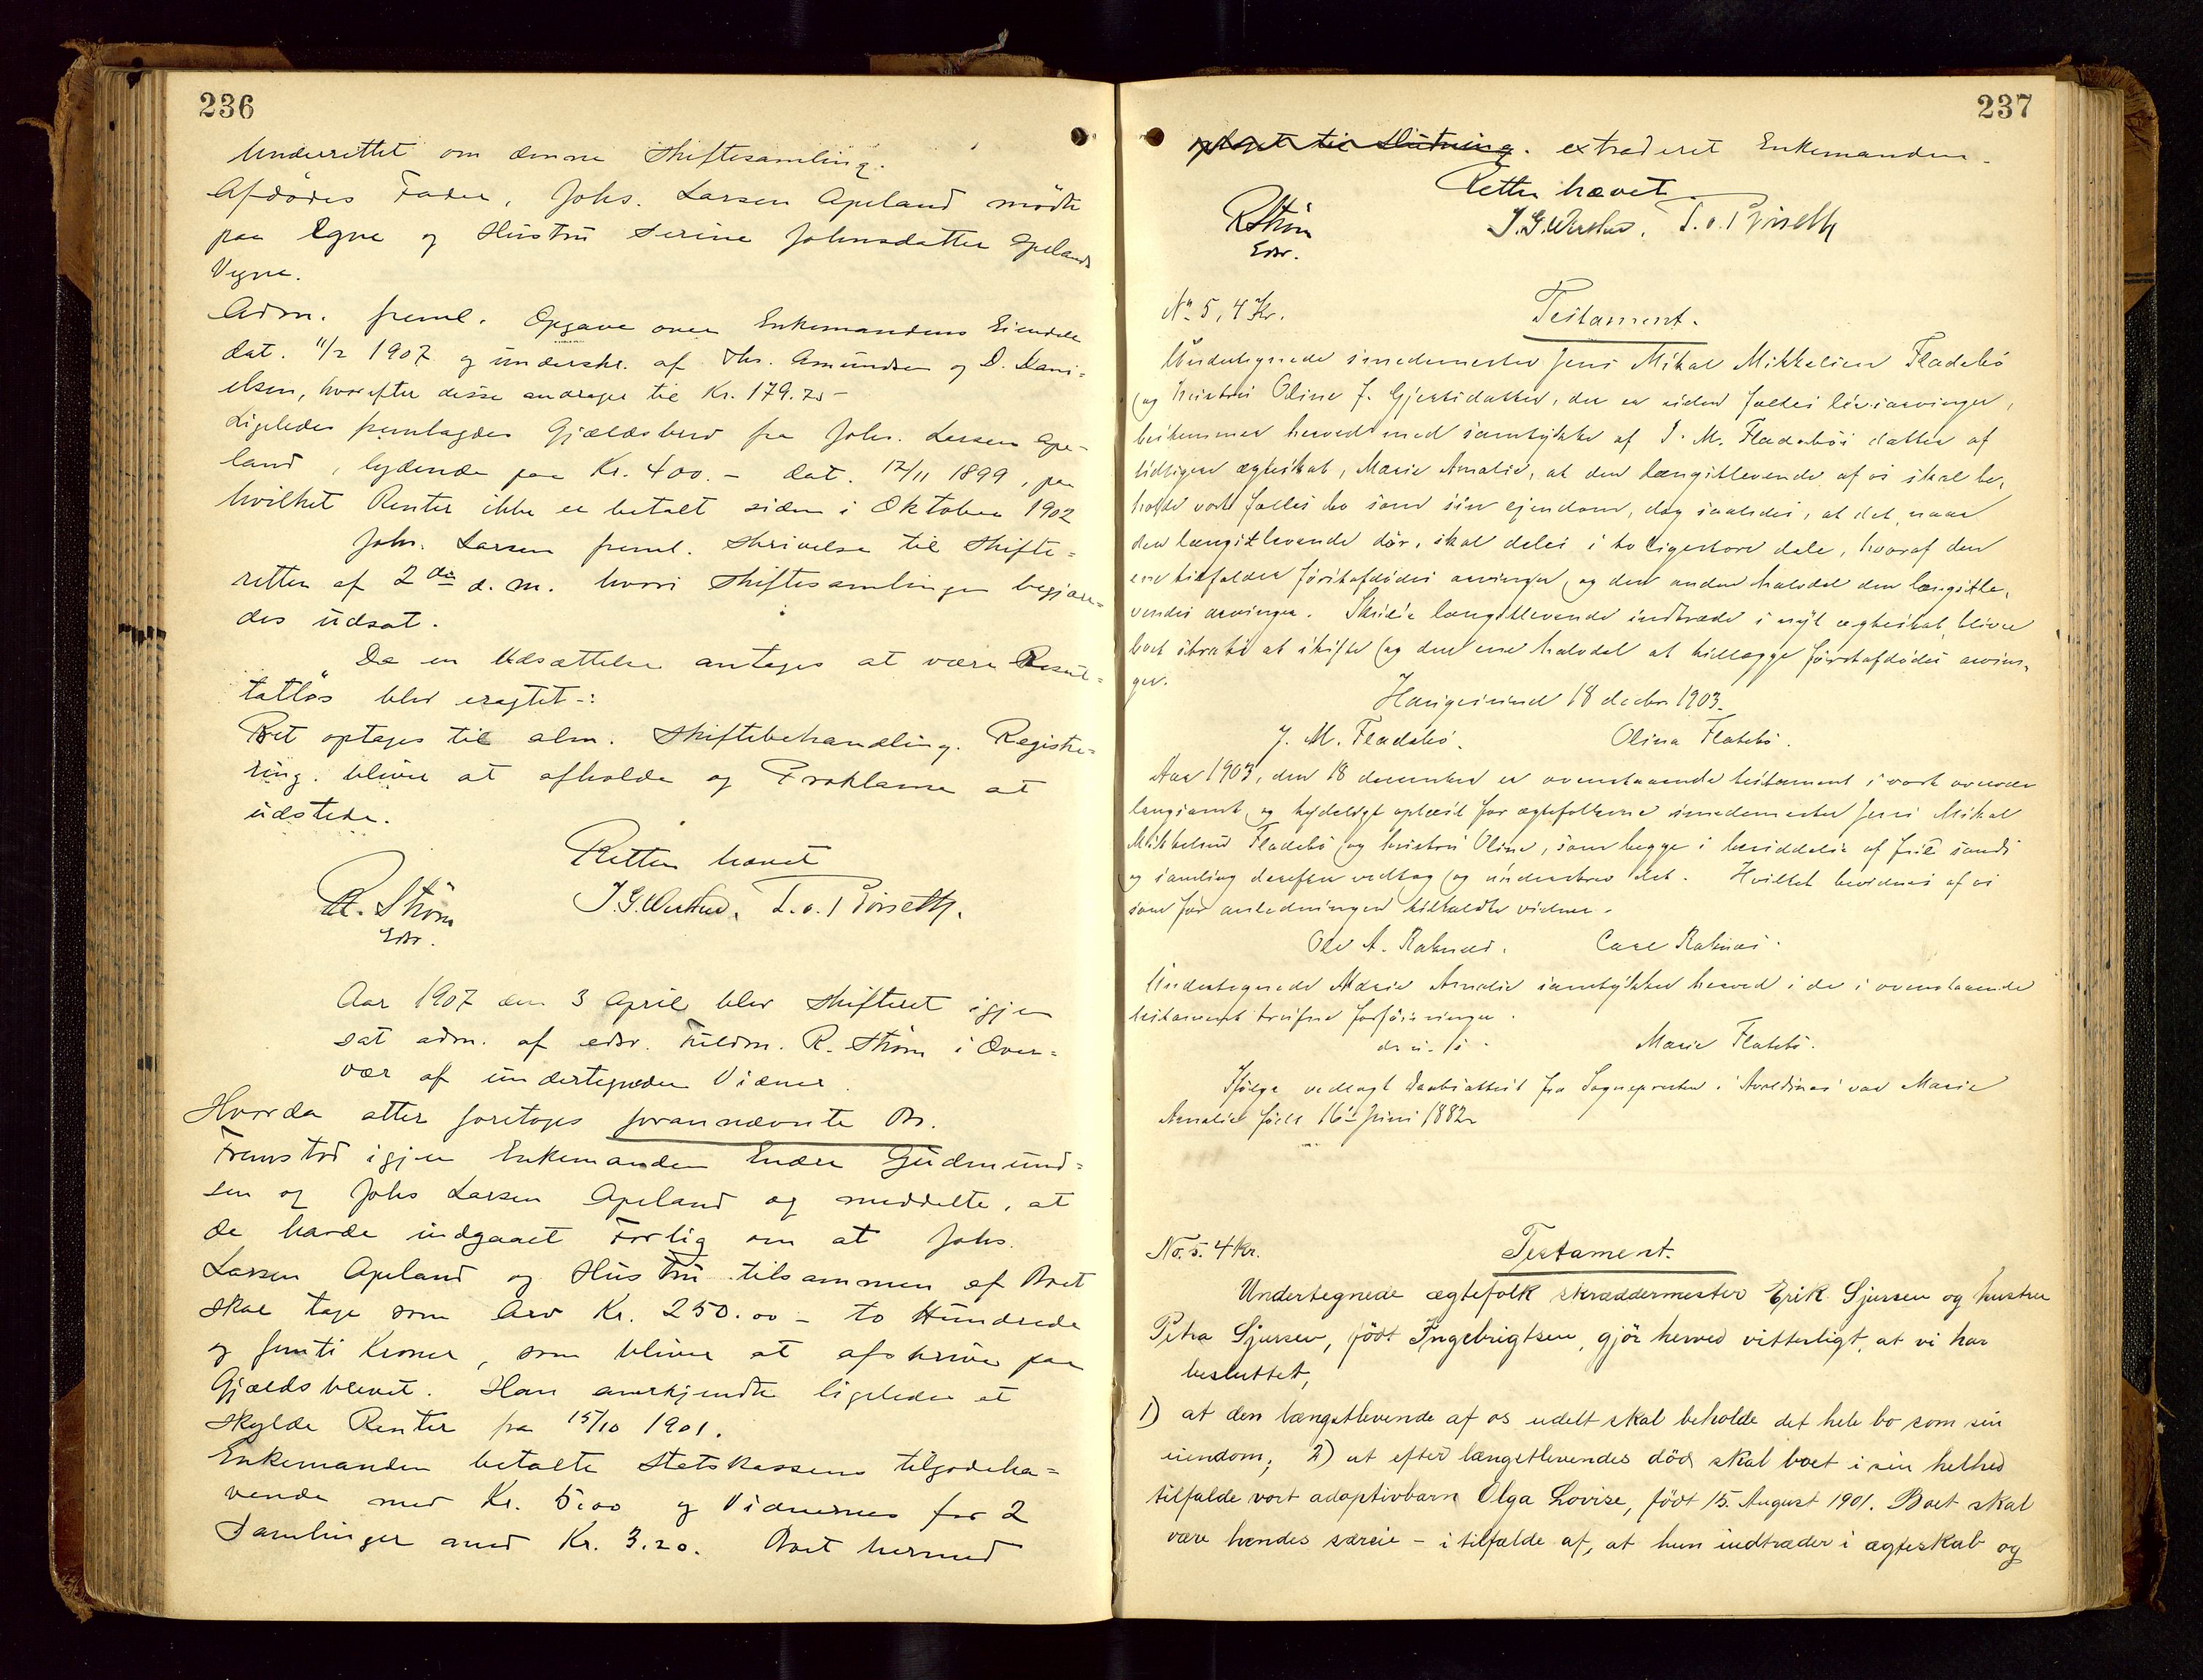 236
Underrettet om denne Skiftesamling.
Afdödes Fader, Johs. Larsen Apeland mödte
paa Egne og Hustru Serine Johnsdatter Apelands
Vegne.
Adm. freml. Opgave over Enkemandens Eiendele
dat. 11/2 1907 og underskr. af Ths. Amundsen og D. Dani-
elsen, hvorefter disse andrager til Kr. 179.75 -
Ligeledes fremlagdes Gjældsbrev fra Johs. Larsen Ape-
land, lydende paa Kr. 400. - dat. 12/11 1899, paa
hvilket Renter ikke er betalt siden i Oktober 1902
Johs. Larsen freml. Skrivelse til Skifte-
retten af 2den d. m. hvori Skiftesamlingen begjæres-
des udsat.
Da en Udsættelse antages at være Resul-
tatlös blev eragtet -:
Boet optages til alm. Skiftebehandling. Registre-
ring bliver at afholde og Proklama at
udstede.
Retten hævet
R. Ström
Edsv.
Aar 1907 den 3 April blev Skifteret igjen
sat adm. af edsv. Fuldm. R. Ström i Over-
vær af undertegnede Vidner.
Hvorda atter foretoges forannævnte Bo.
Fremstod igjen Enkemanden Endre Gudmund-
sen og Johs Larsen Apeland og meddelte, at
de havde indgaaet Forlig om at Johs.
Larsen Apeland og Hustru tilsammen af Boet
skal tage som Arv Kr. 250.00 - to Hundrede
og femti Kroner, som bliver at afskrive paa
Gjældsbrevet. Han anerkjendte ligeledes at
skylde Renter fra 15/10 1901.
Enkemanden betalte Statskassens tilgodeha-
vende med Kr. 5.00 og Vidnernes for 2
Samlinger med Kr. 3.20. Boet hermed
237
optaget til Slutning. extraderet Enkemanden.
Retten hævet
RStröm
Edsv.
No. 5, 4 Kr.
Testament.
Undertegnede smedemester Jens Mikal Mikkelsen Fladebö
og hustru Oline J. Gjertsdatter, der er uden fælles livsarvinger,
bestemmer herved med samtykke af J. M. Fladebös datter af
tidligere ægteskab, Marie Amalie, at den længstlevende af os skal be-
holde vort fælles bo som sin ejendom, dog saaledes, at det, naar
den længstlevende dör, skal deles i to ligestore dele, hvoraf den
ene tilfalder förstafdödes arvinger og den anden halvdel den længstle-
vendes arvinger. Skulde længstlevende indtræde i nyt ægteskab, bliver
boet straks at skifte og den ene halvdel at tillægge förstafdödes arvin-
ger.
Haugesund 18 decbr 1903.
J. M. Fladebö. Olina Flatebö.
Aar 1903, den 18 december er ovenstaaende testament i vort overvær
langsomt og tydeligt oplæst for ægtefolkene smedemester Jens Mikal
Mikkelsen Fladebö og hustru Oline, som begge i besiddelse af fuld sands
og samling derefter vedtog og underskrev det. Hvilket bevidnes af os
som for anledningen tilkaldte vidner.
Ole A. Raknes. Carl Raknes.
Undertegnede Marie Amalie samtykker herved i de i ovenstaaende
testament trufne forföininger.
d. u. s.
Marie Flatebö.
Ifölge vedlagt Daabsattest fra Sognepresten i Avaldsnes var Marie
Amalie födt 16de Juni 1882
No. 5. 4 Kr.
Testament.
Undertegnede ægtefolk skræddermester Erik Sjursen og hustru
Petra Sjursen, född Ingebrigtsen, gjör herved vitterligt, at vi har
besluttet,
1) at den længstlevende af os udelt skal beholde det hele bo som sin
eiendom; 2) at efter længstlevendes död skal boet i sin helhed
tilfalde vort adoptivbarn Olga Lovise, födt 15. August 1901. Boet skal
være hendes særeie - i tilfælde af, at hun indtræder i ægteskab og